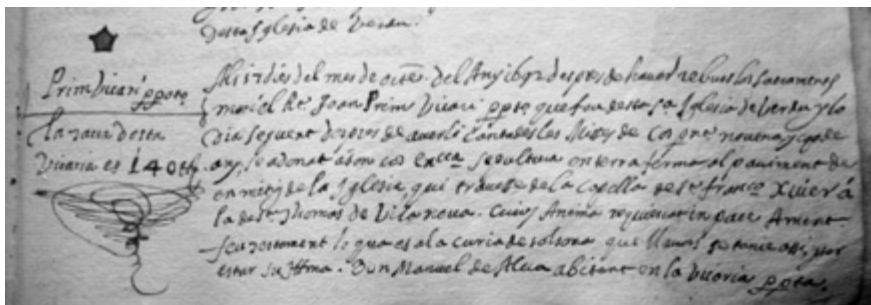 desta Iglesia de Verdu.
Prim Vicari ppetⁿ
la taxa desta
Vicaria es 14
dies del mes de del Any 1692 despres de haver rebut los Sacraments
mori el Rt. Joan Prim Vicari pptⁿ que fou desta Sᵗᵃ Iglesia de Verdu y lo
Dia seguent despres de averli Cantades les Misses de cos novena y cap de
any, se a donat a son cos sepultura en terra ferma al paviment de
en mitg de la Iglesia, qui travesse de la capella de St franco Xavier á
la de St Thomas de Vilanova. Cuius Anima requiescat in pace Ament.
testament lo qual es a la curia de solsona que llavors se tenia assi, per
estar sa Ilma. Don Manuel de Alva abitant en la Vicaria ppta.